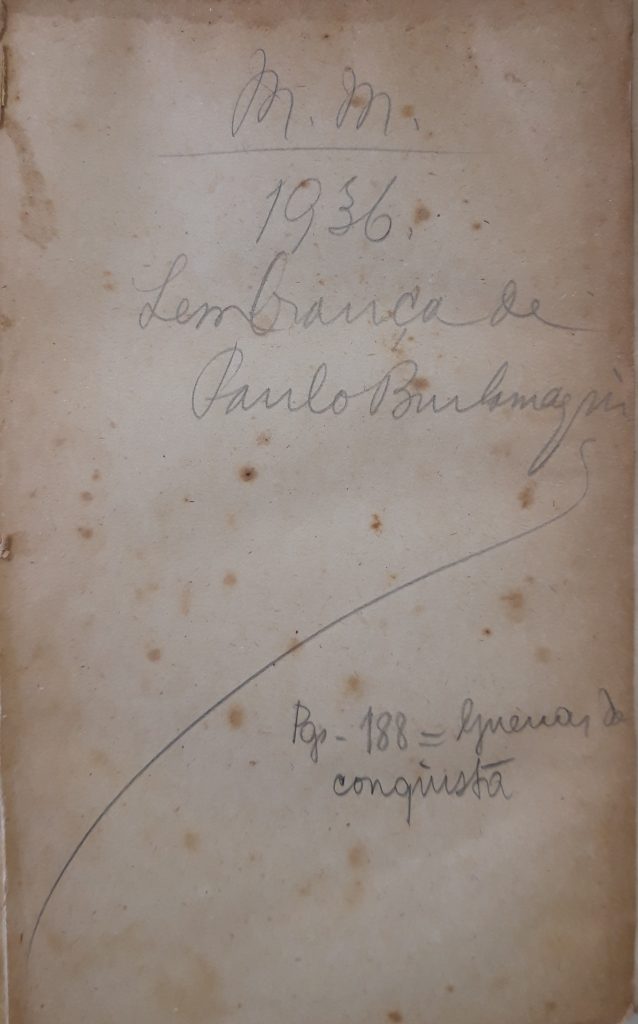 M. M.
1936.
Lembrança de
Paulo Burlamaqui
Pgs - 188 = Guerras da
conquista